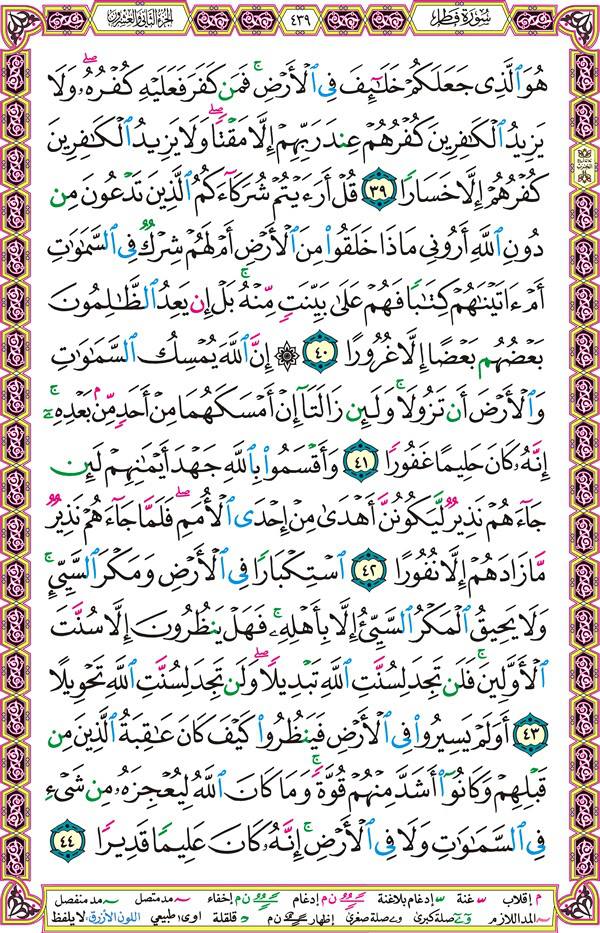 سُورَةُ فَاطِرٍ
٤٣٩
الجُزْءُ الثَّانِي وَالعِشْرُونَ
هُوَ ٱلَّذِى جَعَلَكُمْ خَلَـٰٓئِفَ فِى ٱلْأَرْضِ ۚ فَمَن كَفَرَ فَعَلَيْهِ كُفْرُهُۥ ۖ وَلَا
يَزِيدُ ٱلْكَـٰفِرِينَ كُفْرُهُمْ عِندَ رَبِّهِمْ إِلَّا مَقْتًا ۖ وَلَا يَزِيدُ ٱلْكَـٰفِرِينَ
كُفْرُهُمْ إِلَّا خَسَارًا ٣٩ قُلْ أَرَءَيْتُمْ شُرَكَآءَكُمُ ٱلَّذِينَ تَدْعُونَ مِن
دُونِ ٱللَّهِ أَرُونِى مَاذَا خَلَقُوا۟ مِنَ ٱلْأَرْضِ أَمْ لَهُمْ شِرْكٌ فِى ٱلسَّمَـٰوَٰتِ
أَمْ ءَاتَيْنَـٰهُمْ كِتَـٰبًا فَهُمْ عَلَىٰ بَيِّنَتٍ مِّنْهُ ۚ بَلْ إِن يَعِدُ ٱلظَّـٰلِمُونَ
بَعْضُهُم بَعْضًا إِلَّا غُرُورًا ٤٠ ۞ إِنَّ ٱللَّهَ يُمْسِكُ ٱلسَّمَـٰوَٰتِ
وَٱلْأَرْضَ أَن تَزُولَا ۚ وَلَئِن زَالَتَآ إِنْ أَمْسَكَهُمَا مِنْ أَحَدٍ مِّنۢ بَعْدِهِۦٓ ۚ
إِنَّهُۥ كَانَ حَلِيمًا غَفُورًا ٤١ وَأَقْسَمُوا۟ بِٱللَّهِ جَهْدَ أَيْمَـٰنِهِمْ لَئِن
جَآءَهُمْ نَذِيرٌ لَّيَكُونُنَّ أَهْدَىٰ مِنْ إِحْدَى ٱلْأُمَمِ ۖ فَلَمَّا جَآءَهُمْ نَذِيرٌ
مَّا زَادَهُمْ إِلَّا نُفُورًا ٤٢ ٱسْتِكْبَارًا فِى ٱلْأَرْضِ وَمَكْرَ ٱلسَّيِّئِ ۚ
وَلَا يَحِيقُ ٱلْمَكْرُ ٱلسَّيِّئُ إِلَّا بِأَهْلِهِۦ ۚ فَهَلْ يَنظُرُونَ إِلَّا سُنَّتَ
ٱلْأَوَّلِينَ ۚ فَلَن تَجِدَ لِسُنَّتِ ٱللَّهِ تَبْدِيلًا ۖ وَلَن تَجِدَ لِسُنَّتِ ٱللَّهِ تَحْوِيلًا
٤٣ أَوَلَمْ يَسِيرُوا۟ فِى ٱلْأَرْضِ فَيَنظُرُوا۟ كَيْفَ كَانَ عَـٰقِبَةُ ٱلَّذِينَ مِن
قَبْلِهِمْ وَكَانُوٓا۟ أَشَدَّ مِنْهُمْ قُوَّةً ۚ وَمَا كَانَ ٱللَّهُ لِيُعْجِزَهُۥ مِن شَىْءٍ
فِى ٱلسَّمَـٰوَٰتِ وَلَا فِى ٱلْأَرْضِ ۚ إِنَّهُۥ كَانَ عَلِيمًا قَدِيرًا ٤٤
م إقلاب غنة إدغام بلاغنة ن م إدغام ن م إخفاء مد متصل مد منفصل
المد اللازم صلة كبرى صلة صغرى إظهار ن م قلقلة اوى: طبيعي اللون الأزرق: لا يلفظ